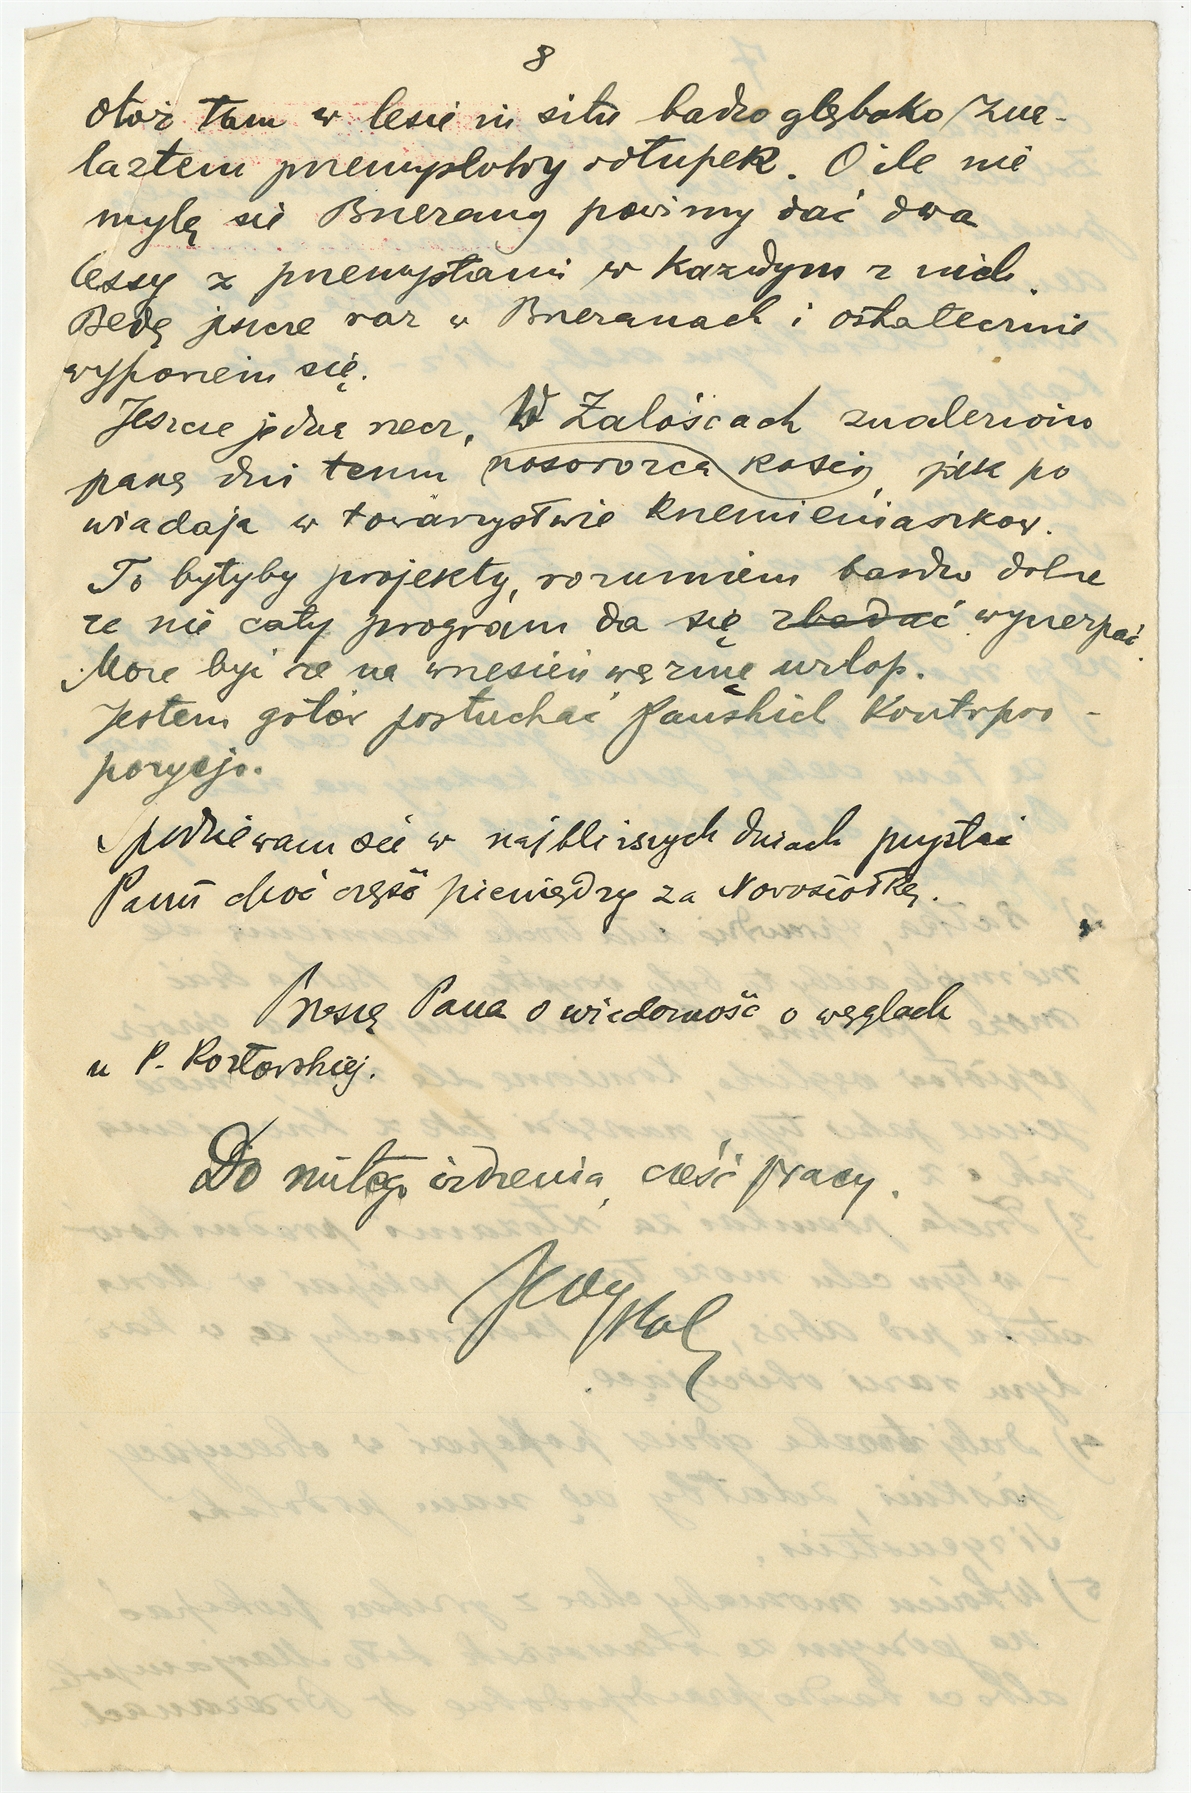 8
Otóż tam w lesie in situ badzo głęboko zna-
lazłem przemysłowy odłupek. O ile nie
mylę sie Brzerany powinny dać dwa
lessy z przemysłami w każdym z nich.
Bedę jescze raz w Brzeranach i ostatecznie
wypowiem się.
Jescze jedna rzecz. W Załoścach znaleziono
parę dni temu nosorożca kości, jak po
wiadają w towarzystwie Krzemieniaszkow.
To byłyby projekty, rozumiem bardzo dobrze
ze nie cały program da się zbadać wyczerpać.
Może być ze na wrzesień wezmę urlop.
Jestem gotów posłuchać Pańskich Kontrpro-
pozycji.
Spodziewam sie w najbliższych dniach przysłać
Panu choć część pieniędzy za Nowosiółkę.
Proszę Pana o wiadomość o węglach
u P. Kozłowskiej.
Do miłego widzenia, cześć pracy.